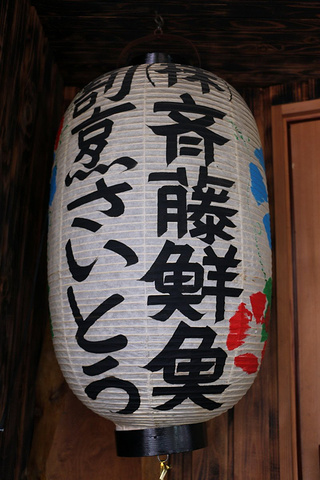 (株)斉藤鮮魚
割烹さいとう